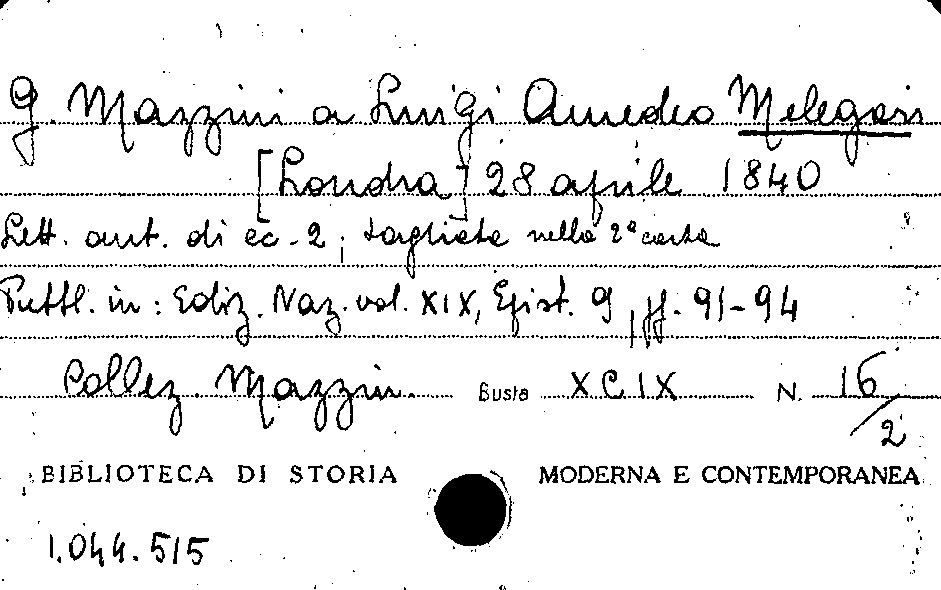 G. Mazzini a Luigi Amedeo Melegari
[Londra] 28 aprile 1840
Lett. aut. di cc. 2, tagliata nella 2ª carta
Pubbl. in: Ediz. Naz. vol. XIX, Epist. 9, pp. 91-94
Collez. Mazzin. Busta XCIX N. 16/2
BIBLIOTECA DI STORIA MODERNA E CONTEMPORANEA
1.044.515